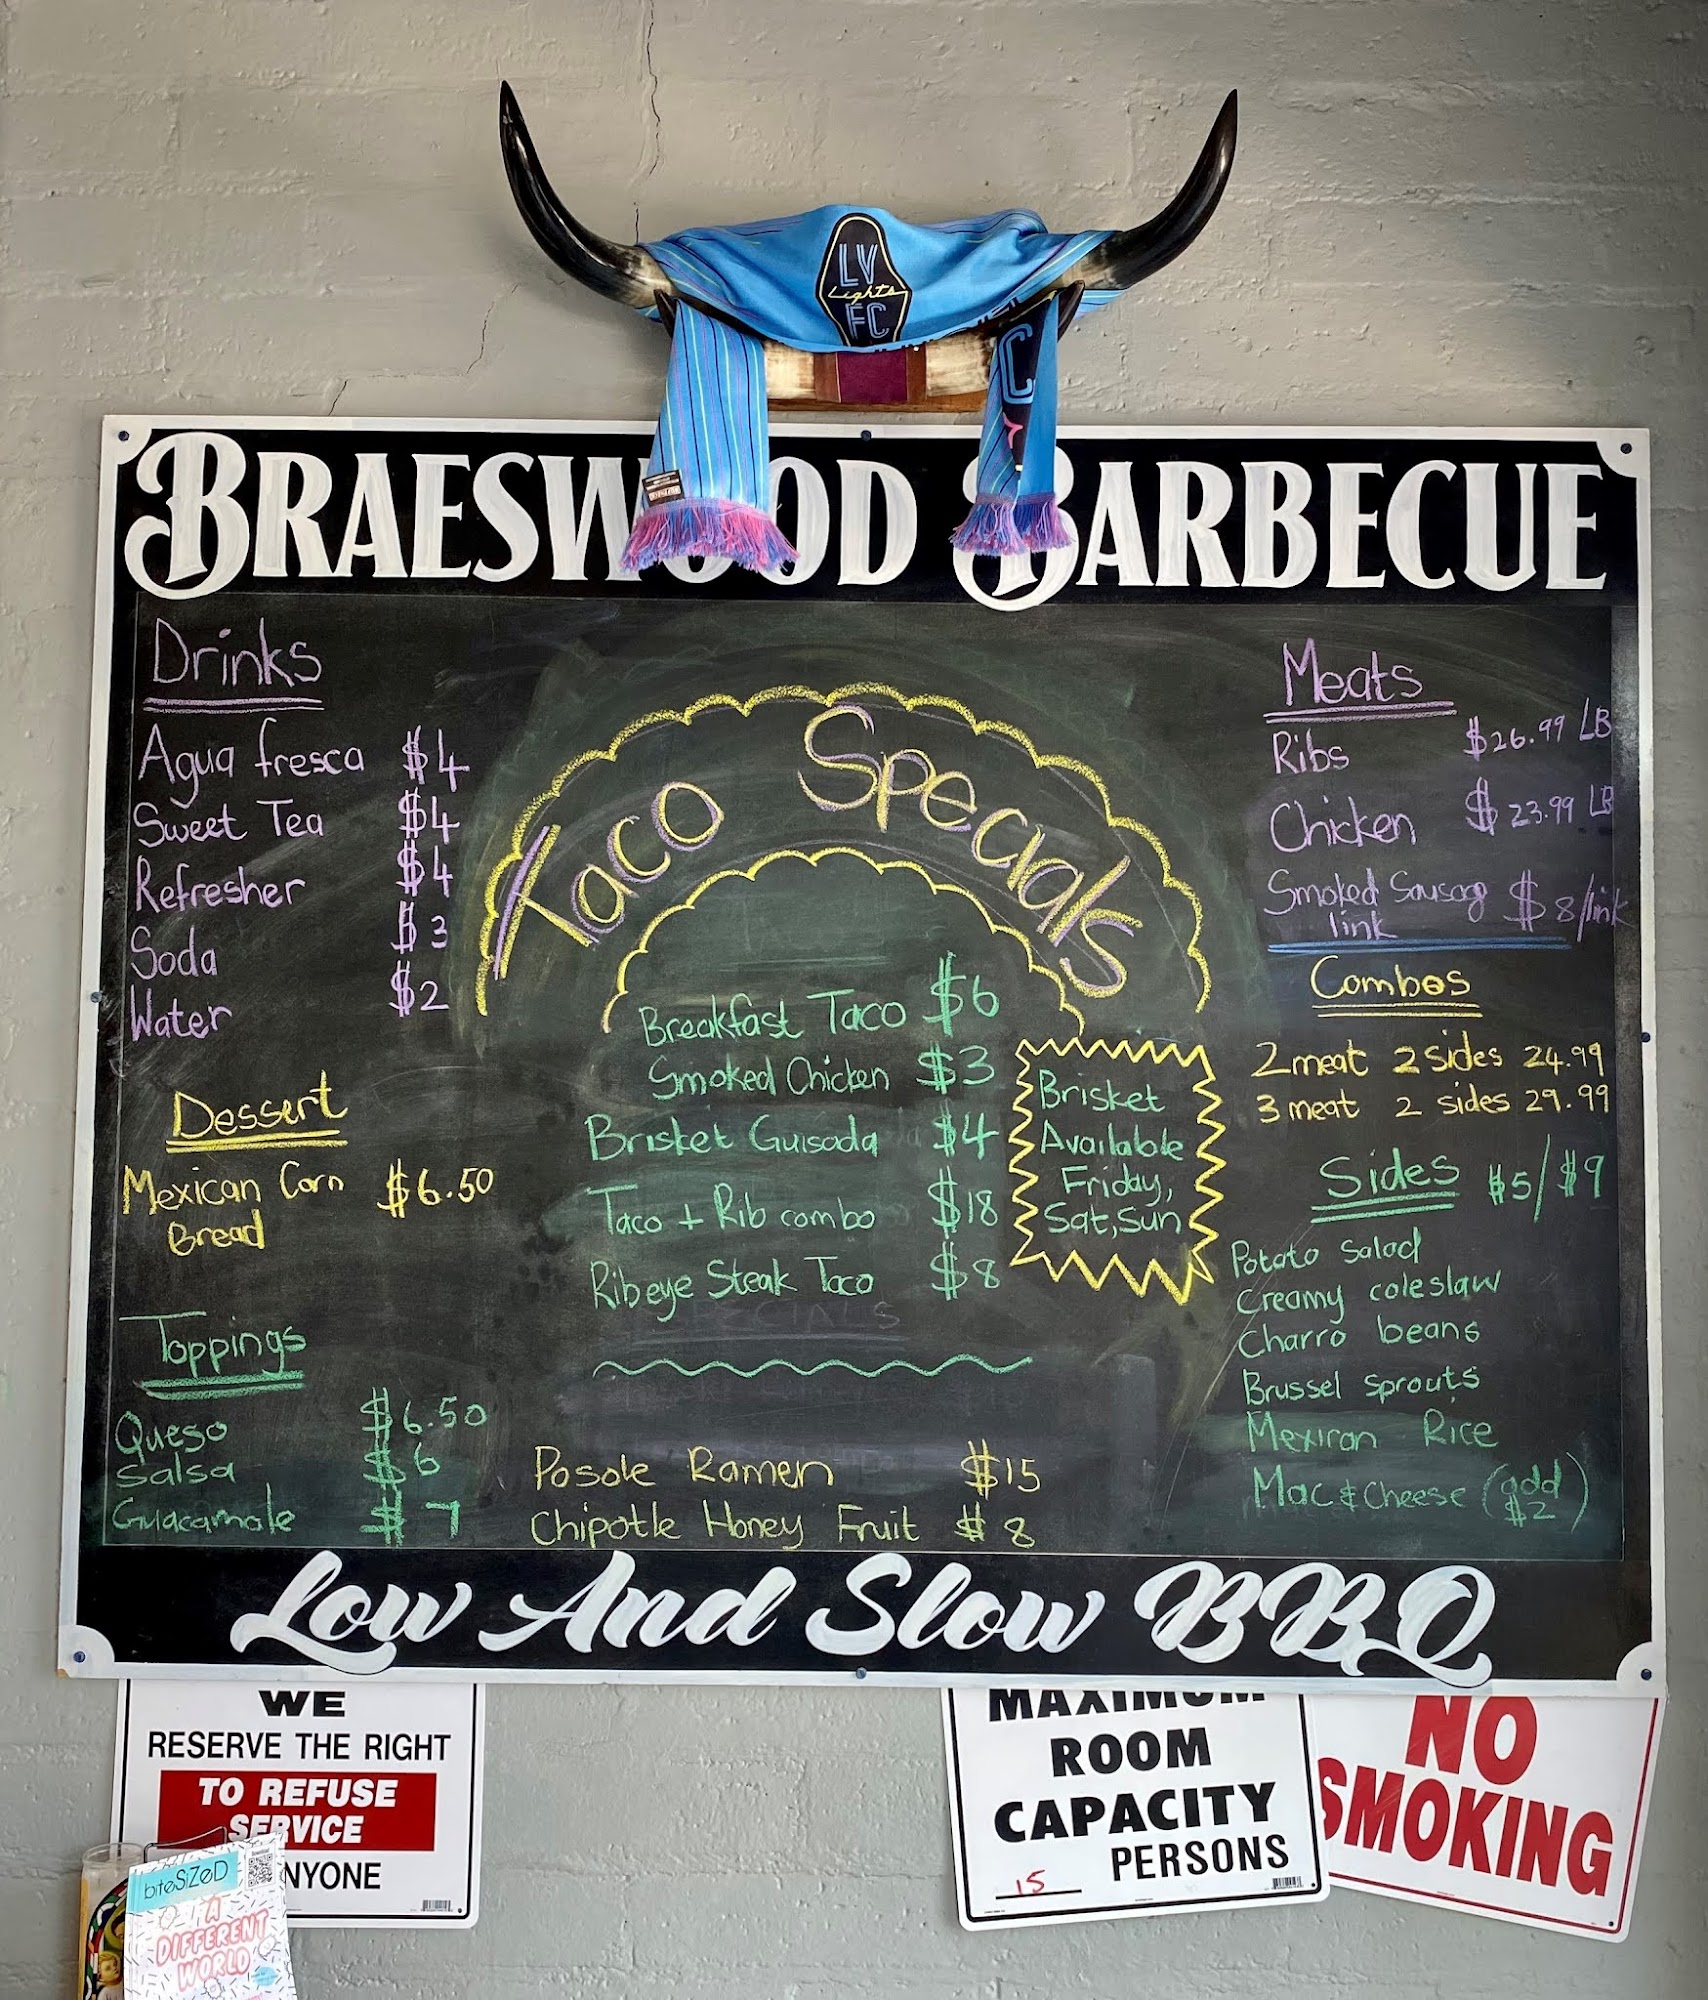 LV
Lights
FC
BRAESWOOD BARBECUE
Drinks
Agua fresca $4
Sweet Tea $4
Refresher $4
Soda $3
Water $2
Dessert
Mexican Corn $6.50
Bread
Toppings
Queso $6.50
Salsa $6
Guacamole $7
Taco Specials
Breakfast Taco $6
Smoked Chicken $3
Brisket Guisada $4
Taco + Rib combo $18
Ribeye Steak Taco $8
SPECIALS
Brisket
Available
Friday,
Sat, Sun
Posole Ramen $15
Chipotle Honey Fruit $8
Meats
Ribs $26.99 LB
Chicken $23.99 LB
Smoked Sausag $8/link
link
Combos
2 meat 2 sides 24.99
3 meat 2 sides 29.99
Sides $5/$9
Potato Salad
Creamy coleslaw
Charro beans
Brussel sprouts
Mexican Rice
Mac & Cheese (add $2)
Low And Slow BBQ
WE
RESERVE THE RIGHT
TO REFUSE
SERVICE
NYONE
biteSIZeD
A
DIFFERENT
WORLD
MAXIMUM
ROOM
CAPACITY
15 PERSONS
NO
SMOKING